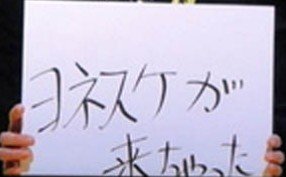 ヨネスケが
来ちゃった